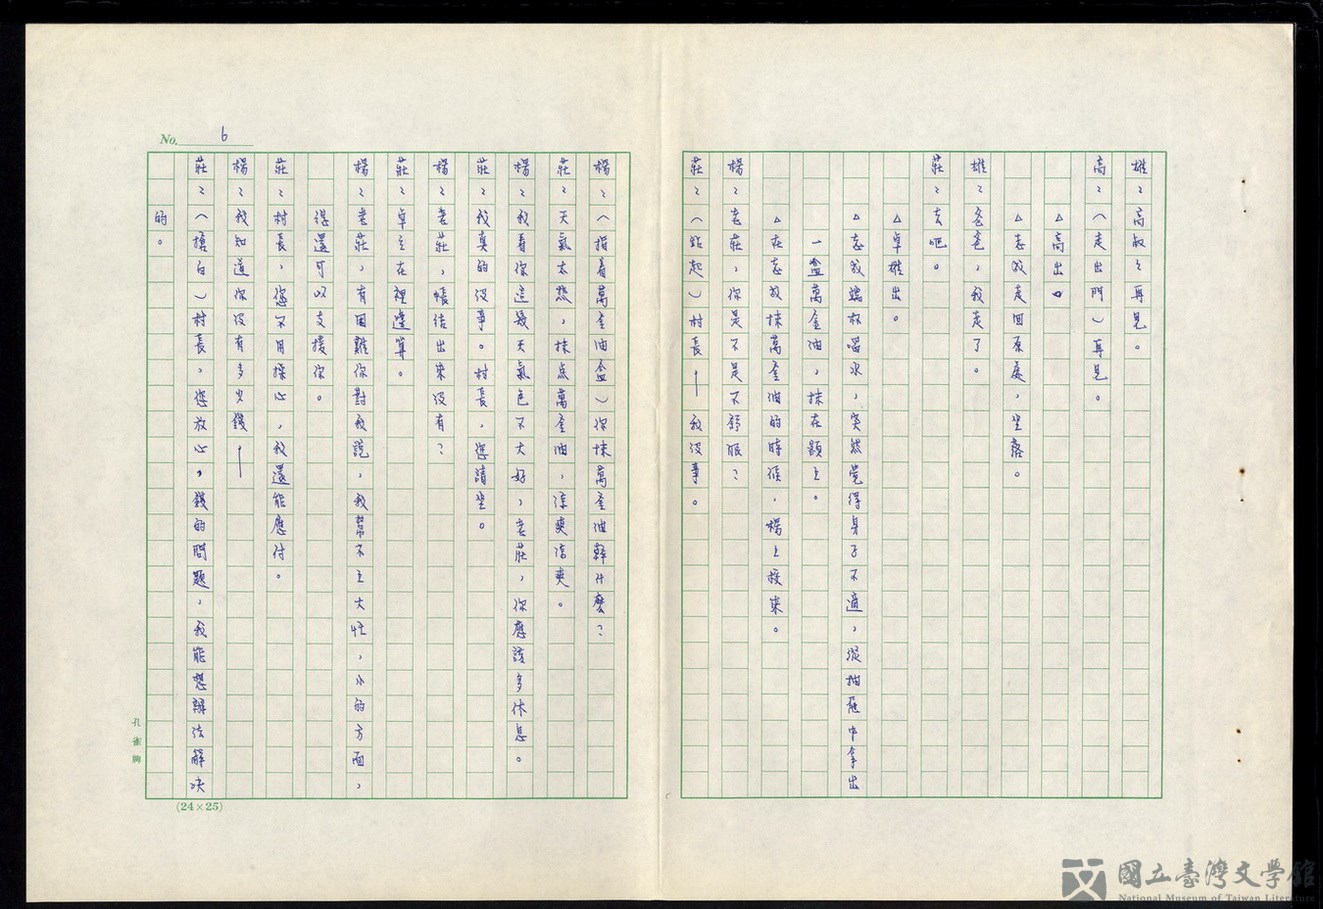 雄：高叔叔再見。
高：（走出門）再見。
△高出。
△志放走回原處，坐落。
雄：爸爸，我走了。
莊：去吧。
△卓雄出。
△志放端杯喝水，突然覺得身子不適，從抽屜中拿出
一盒萬金油，抹在額上。
△在志放抹萬金油的時候，楊上接來。
楊：老莊，你是不是不舒服？
莊：（站起）村長—我沒事。
楊：（指着萬金油盒）你抹萬金油幹什麼？
莊：天氣太熱，抹点萬金油，涼爽涼爽。
楊：我看你這幾天氣色不大好，老莊，你應該多休息。
莊：我真的沒事。村長，您請坐。
楊：老莊，帳结出來沒有？
莊：卓立在裡邊算。
楊：老莊，有困難你對我說，我幫不上大忙，小的方面，
還可以支援你。
莊：村長，您不用操心，我還能應付。
楊：我知道你沒有多少錢—
莊：（搶白）村長，您放心，錢的問題，我能想辦法解決
的。
No. 6
孔雀牌
(24×25)
國立臺灣文學館
National Museum of Taiwan Literature